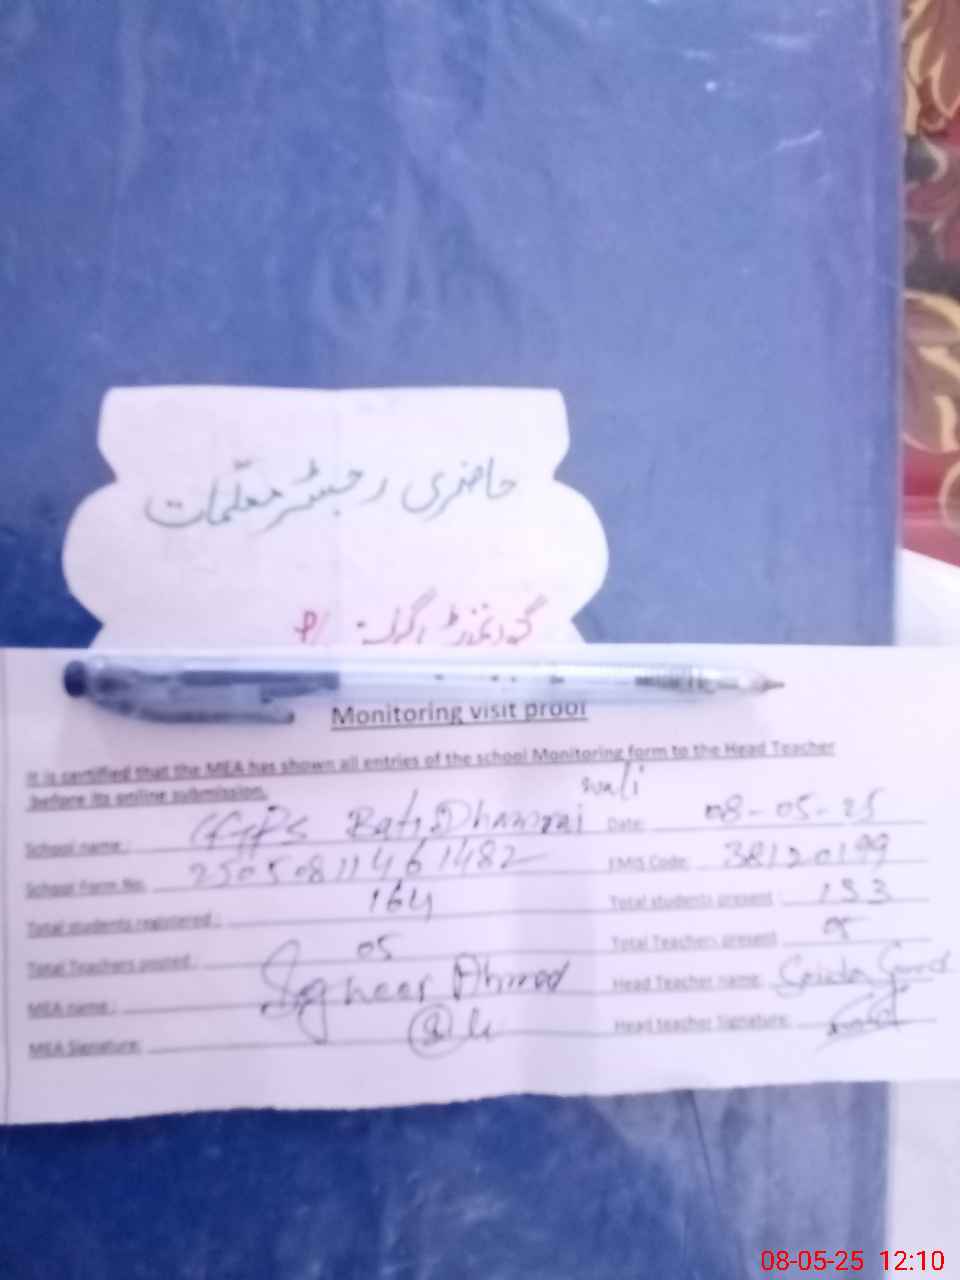 حاضری رجسٹر معلّمات
گورنمنٹ گرلز
Monitoring visit proof
It is certified that the MEA has shown all entries of the school Monitoring form to the Head Teacher
before its online submission.
wali
School name: GGPS Dhamrai Date: 08-05-25
School Form No: 25050811461482 EMIS Code: 38120199
Total students registered: 164 Total students present 153
Total Teachers posted: 05 Total Teachers present 05
MEA name: Ahmad Head Teacher name: Saida
MEA Signature: Head teacher Signature:
08-05-25 12:10